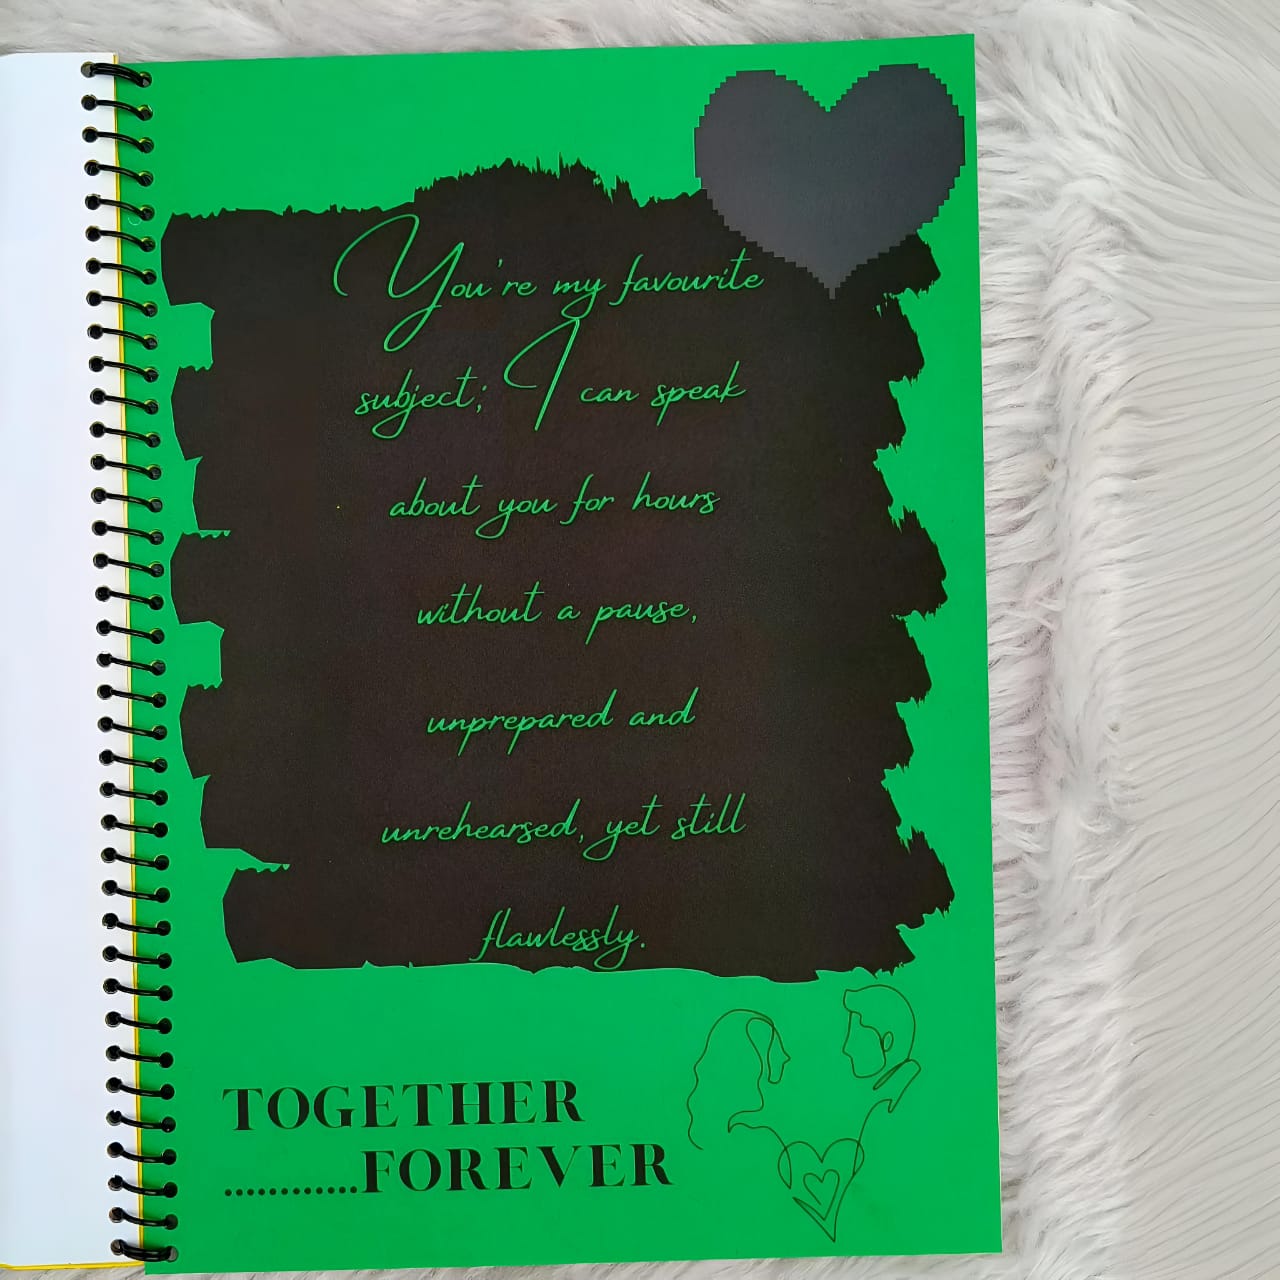 You're my favourite
subject; I can speak
about you for hours
without a pause,
unprepared and
unrehearsed, yet still
flawlessly.
TOGETHER
............FOREVER